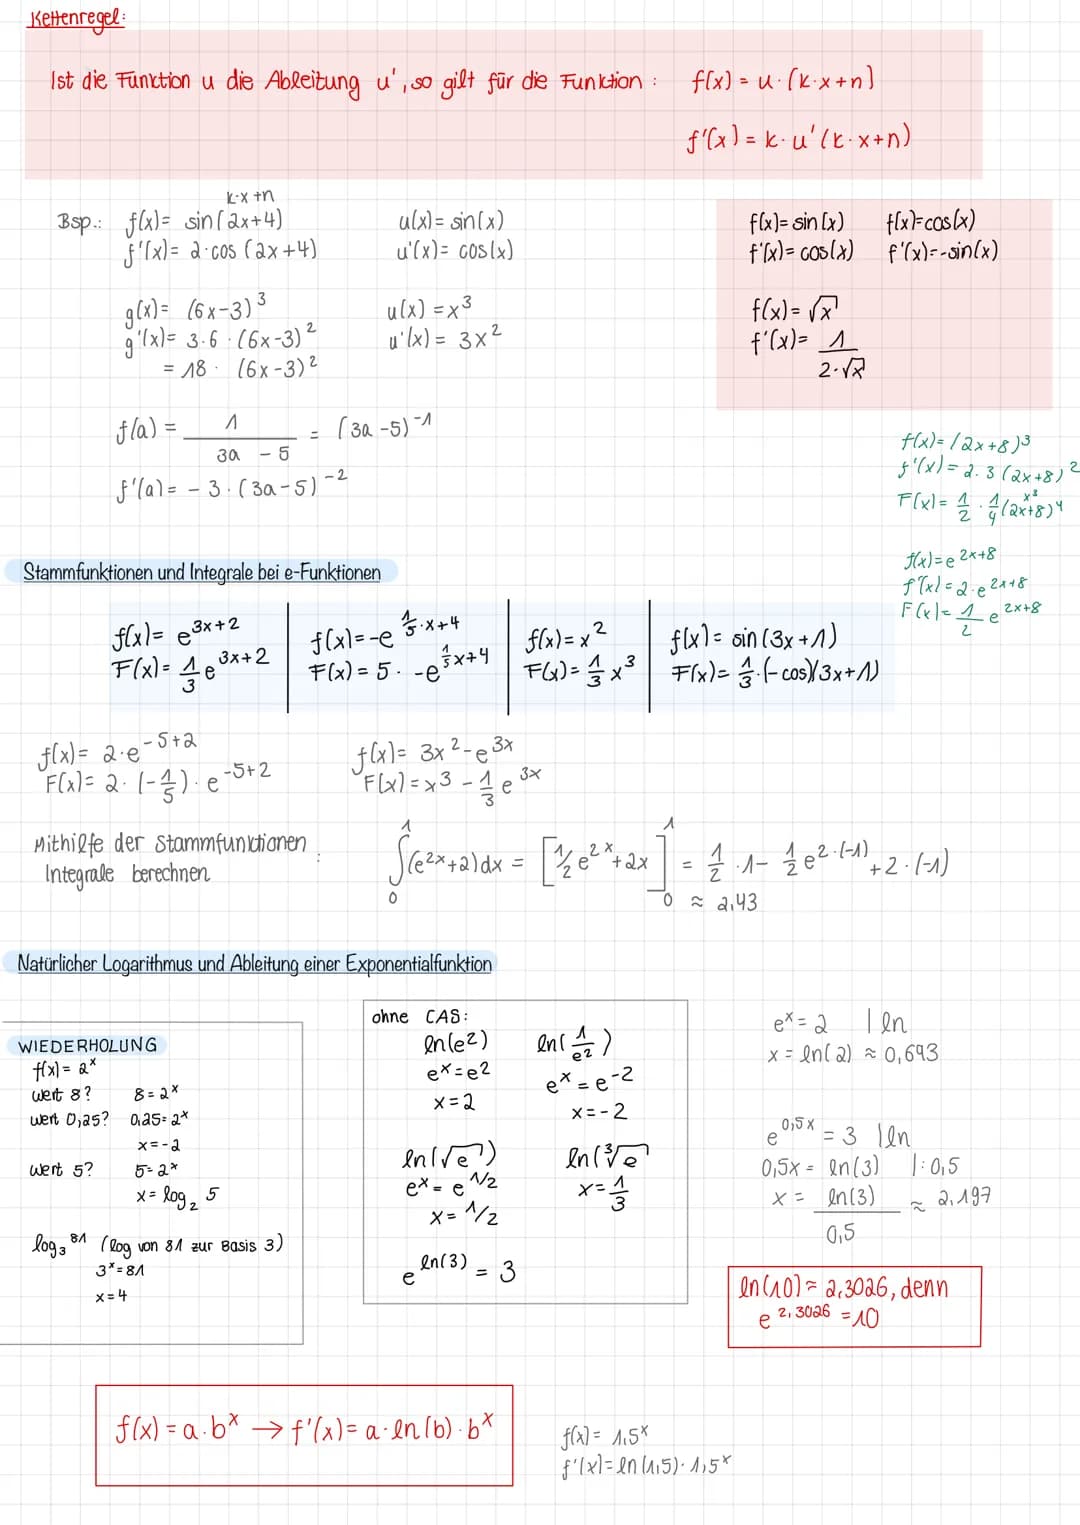 Kettenregel:
Ist die Funktion u die Ableitung u', so gilt für die Funktion : f(x) = u · (k·x+n)
f'(x) = k · u' (k·x+n)
k·x +n
Bsp.: f(x)= sin(2x+4) u(x)= sin(x)
f'(x)= 2·cos (2x+4) u'(x)= cos(x)
g(x)= (6x-3)³ u(x) = x³
g'(x)= 3·6 · (6x-3)² u'(x) = 3x²
= 18 · (6x-3)²
f(a) = 1/(3a - 5) = (3a -5)⁻¹
f'(a)= - 3 · (3a-5)⁻²
f(x)= sin(x) f(x)=cos(x)
f'(x)= cos(x) f'(x)=-sin(x)
f(x)= √x
f'(x)= 1/(2·√x)
f(x)= (2x+8)³
f'(x)= 2·3 (2x+8)²
x³
F(x)= 1/2 · 1/4 (2x+8)⁴
f(x)=e^(2x+8)
f'(x)=2·e^(2x+8)
F(x)= 1/2 e^(2x+8)
Stammfunktionen und Integrale bei e-Funktionen
f(x)= e^(3x+2) f(x)=-e^(1/5·x+4) f(x)=x² f(x)= sin(3x+1)
F(x)= 1/3 e^(3x+2) F(x)= 5· -e^(1/5x+4) F(x)= 1/3 x³ F(x)= 1/3·(-cos)(3x+1)
f(x)= 2·e^(-5+2) f(x)= 3x²-e^(3x)
F(x)= 2·(-1/5)·e^(-5+2) F(x)=x³ - 1/3 e^(3x)
Mithilfe der Stammfunktionen :
Integrale berechnen
∫₀¹(e^(2x)+2)dx = [1/2 e^(2x)+2x]₀¹ = 1/2 ·1- 1/2 e^(2·(-1)) +2·(-1)
≈ 2,43
Natürlicher Logarithmus und Ableitung einer Exponentialfunktion
WIEDERHOLUNG
f(x)= 2ˣ
wert 8? 8=2ˣ
wert 0,25? 0,25=2ˣ
x=-2
wert 5? 5=2ˣ
x= log₂ 5
log₃ 81 (log von 81 zur Basis 3)
3ˣ=81
x=4
ohne CAS:
ln(e²) ln(1/e²)
eˣ=e² eˣ=e⁻²
x=2 x=-2
ln(√e) ln(³√e
eˣ= e^(1/2) x= 1/3
x= 1/2
e^(ln(3)) = 3
eˣ= 2 | ln
x = ln(2) ≈ 0,693
e^(0,5x) = 3 |ln
0,5x = ln(3) |:0,5
x = ln(3)/0,5 ≈ 2,197
ln(10) ≈ 2,3026, denn
e^(2,3026) =10
f(x)=a·bˣ → f'(x)= a·ln(b)·bˣ
f(x)= 1,5ˣ
f'(x)=ln(1,5)·1,5ˣ